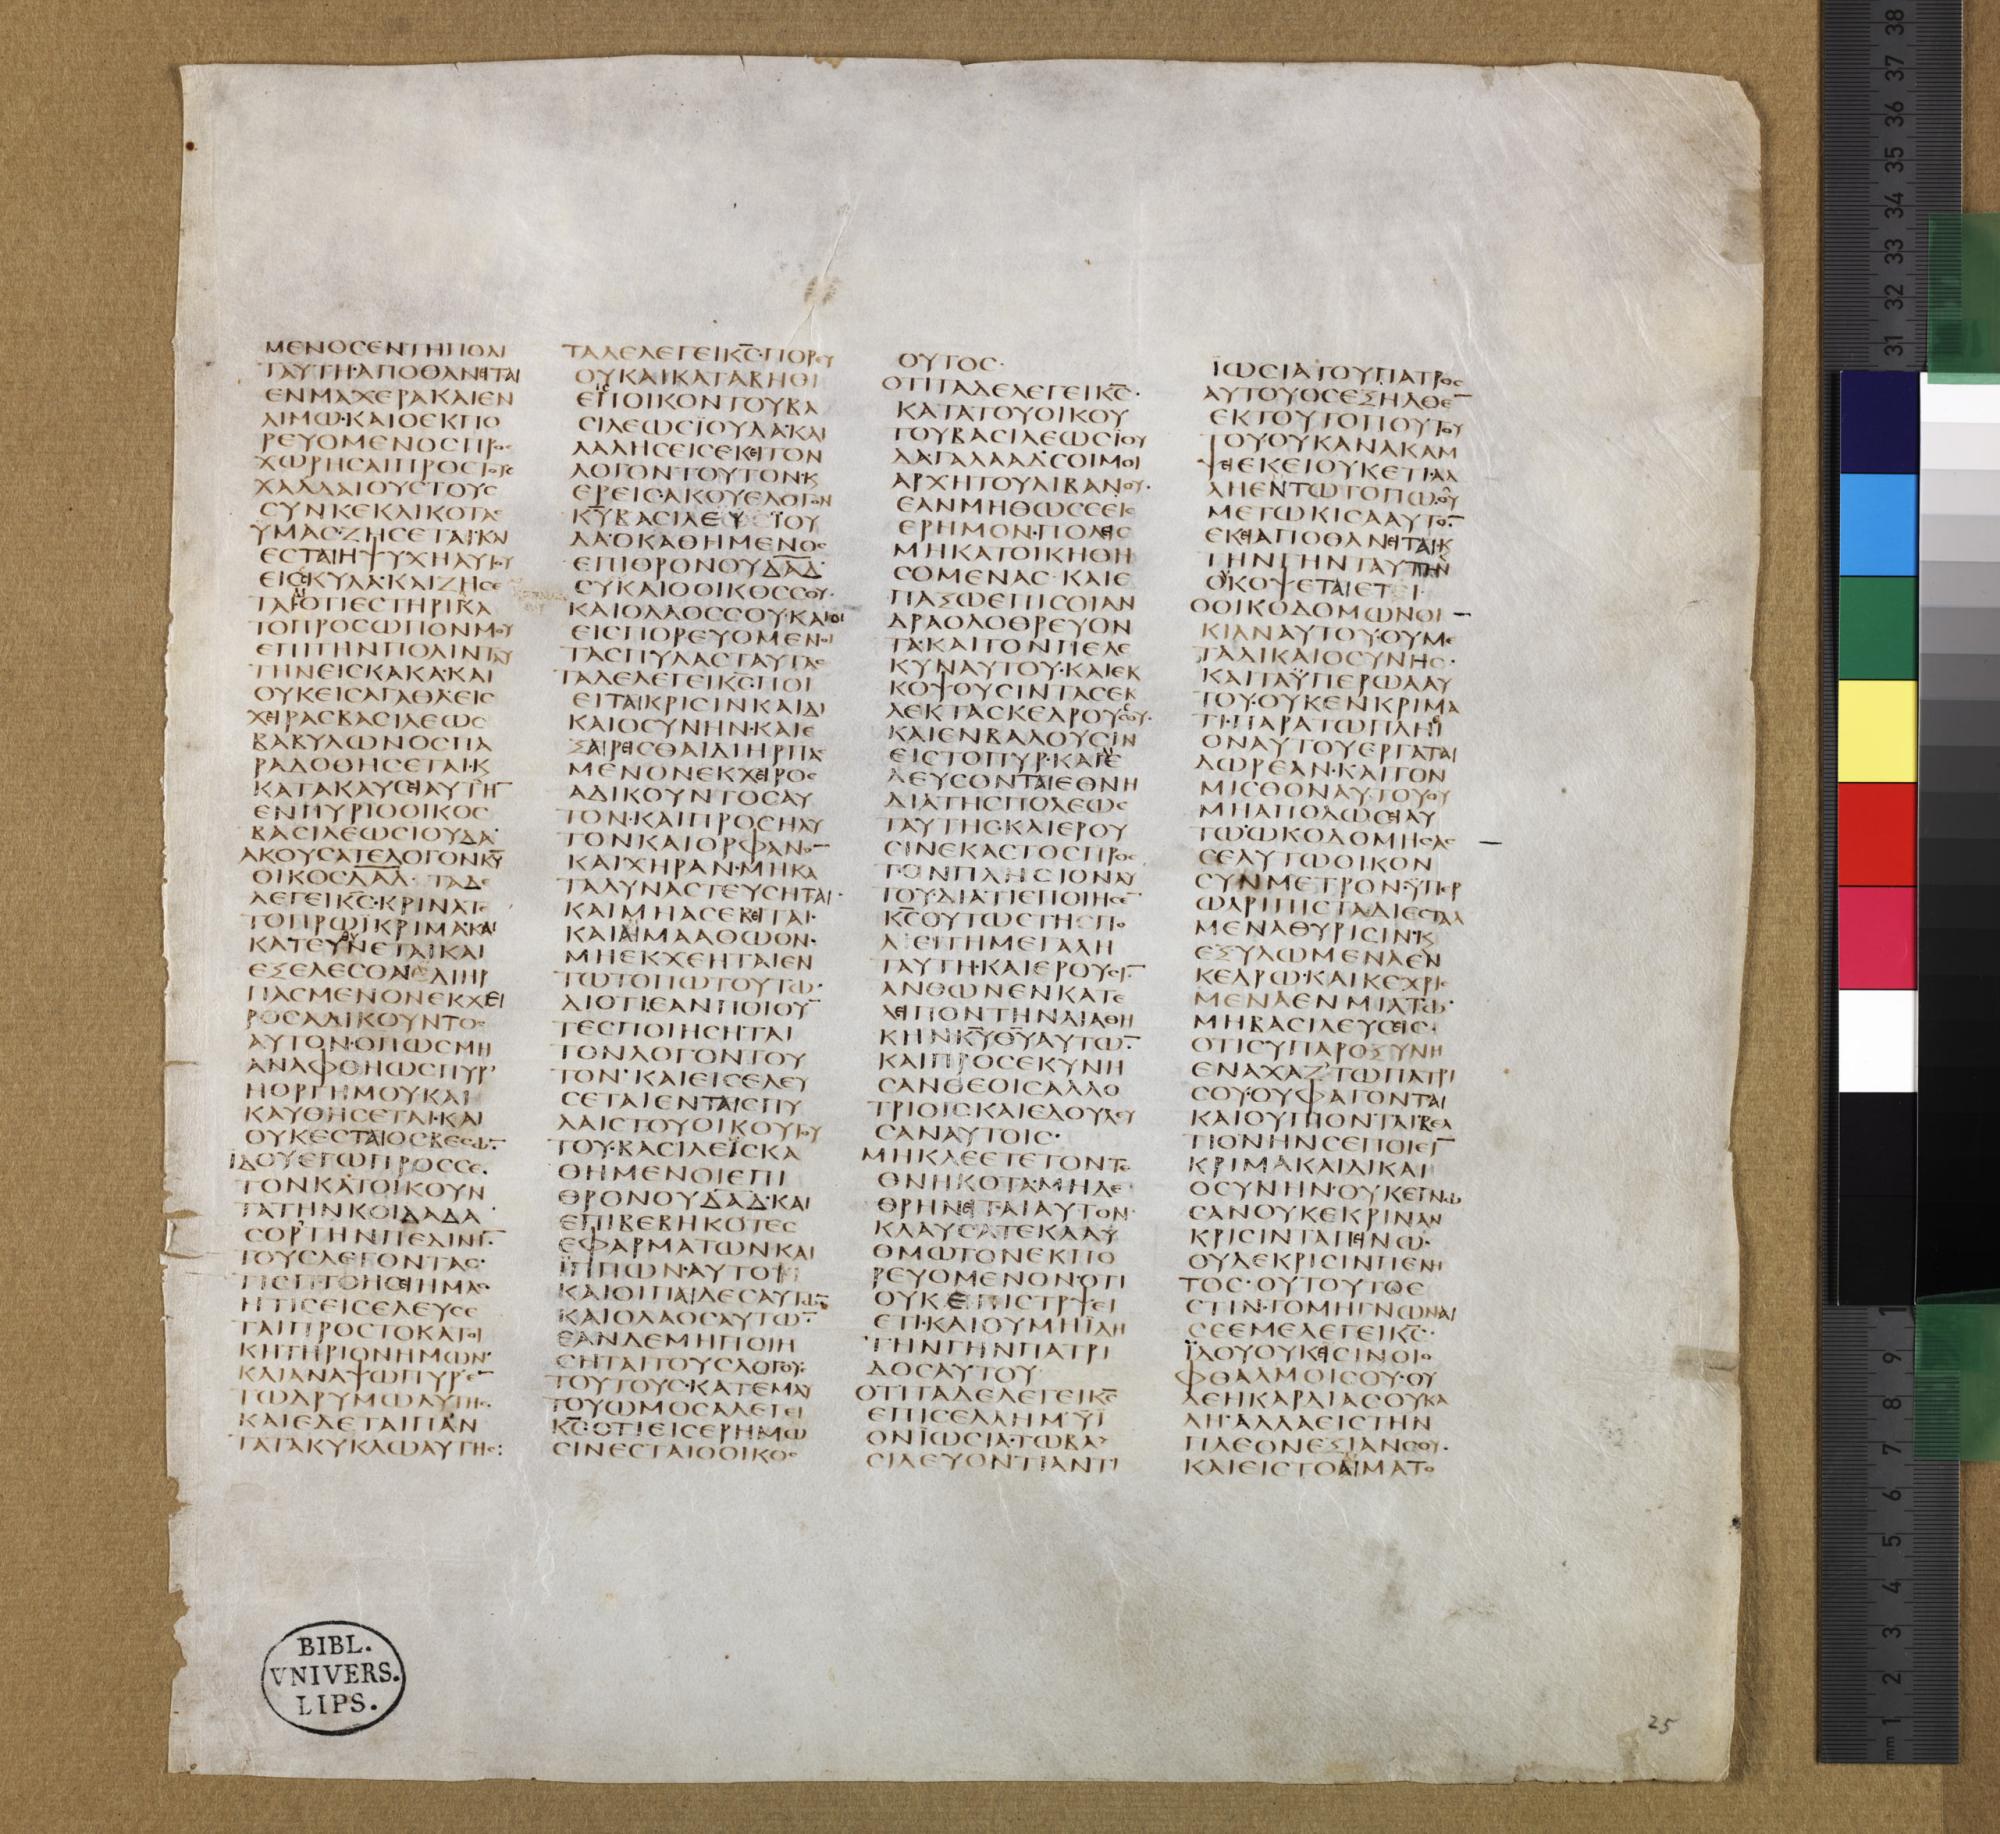 ΜΕΝΟCΕΝΤΗΠΟΛΙ
ΤΑΥΤΗ·ΑΠΟΘΑΝΕΙΤΑΙ
ΕΝΜΑΧΕΡΑΚΑΙΕΝ
ΛΙΜΩ·ΚΑΙΟΕΚΠΟ
ΡΕΥΟΜΕΝΟCΠΡΟC
ΧΩΡΗCΑΙΠΡΟCΤΟΥC
ΧΑΛΔΑΙΟΥCΤΟΥC
CΥΝΚΕΚΛΙΚΟΤΑC
ΥΜΑC·ΖΗCΕΤΑΙ·ΚΑΙ
ΕCΤΑΙΗΨΥΧΗΑΥΤΟΥ
ΕΙCCΚΥΛΑ·ΚΑΙΖΗCΕ
ΤΑΙΟΤΙΕCΤΗΡΙΚΑ
ΤΟΠΡΟCΩΠΟΝΜΟΥ
ΕΠΙΤΗΝΠΟΛΙΝΤΑΥ
ΤΗΝΕΙCΚΑΚΑ·ΚΑΙ
ΟΥΚΕΙCΑΓΑΘΑ·ΕΙC
ΧΕΙΡΑCΒΑCΙΛΕΩC
ΒΑΒΥΛΩΝΟCΠΑ
ΡΑΔΟΘΗCΕΤΑΙ·Κ
ΚΑΤΑΚΑΥCΕΙΑΥΤΗ̅
ΕΝΠΥΡΙΟΟΙΚΟC
ΒΑCΙΛΕΩCΙΟΥΔΑ·
ΑΚΟΥCΑΤΕΛΟΓΟΝΚ̅Υ̅
ΟΙΚΟCΔ̅Α̅Δ̅·ΤΑΔΕ
ΛΕΓΕΙΚ̅C̅·ΚΡΙΝΑΤΕ
ΤΟΠΡΩΪΚΡΙΜΑ·ΚΑΙ
ΚΑΤΕΥΘΥΝΕΤΑΙΚΑΙ
ΕΞΕΛΕCΘΑΙΔΙΗΡ
ΠΑCΜΕΝΟΝΕΚΧΕΙ
ΡΟCΑΔΙΚΟΥΝΤΟC
ΑΥΤΟΝ·ΟΠΩCΜΗ
ΑΝΑΦΘΗΩCΠΥΡ
ΗΟΡΓΗΜΟΥΚΑΙ
ΚΑΥΘΗCΕΤΑΙ·ΚΑΙ
ΟΥΚΕCΤΑΙΟCΒΕCΩ̅
ΙΔΟΥΕΓΩΠΡΟCCΕ·
ΤΟΝΚΑΤΟΙΚΟΥΝ
ΤΑΤΗΝΚΟΙΛΑΔΑ
CΟΡΤΗΝΠΕΔΙΝΗ̅
ΤΟΥCΛΕΓΟΝΤΑC·
ΤΙCΠΤΟΗCΕΙΗΜΑC
ΗΤΙCΕΙCΕΛΕΥCΕ
ΤΑΙΠΡΟCΤΟΚΑΤΟΙ
ΚΗΤΗΡΙΟΝΗΜΩΝ·
ΚΑΙΑΝΑΨΩΠΥΡΕ̅
ΤΩΔΡΥΜΩΑΥΤΗC·
ΚΑΙΕΔΕΤΑΙΠΑΝ
ΤΑΤΑΚΥΚΛΩΑΥΤΗC:
ΤΑΔΕΛΕΓΕΙΚ̅C̅·ΠΟΡΕΥ
ΟΥΚΑΙΚΑΤΑΒΗΘΙ
ΕΙCΟΙΚΟΝΤΟΥΒΑ
CΙΛΕΩCΪΟΥΔΑ·ΚΑΙ
ΛΑΛΗCΕΙCΕΚΕΙΤΟΝ
ΛΟΓΟΝΤΟΥΤΟΝ·Κ
ΕΡΕΙC·ΑΚΟΥΕΛΟΓΟΝ
Κ̅Υ̅ΒΑCΙΛΕΥ ΪΟΥ
ΔΑ·ΟΚΑΘΗΜΕΝΟC
ΕΠΙΘΡΟΝΟΥΔ̅Α̅Δ̅·
CΥΚΑΙΟΟΙΚΟCCΟΥ·
ΚΑΙΟΛΑΟCCΟΥ·ΚΑΙΟΙ
ΕΙCΠΟΡΕΥΟΜΕΝΟΙ
ΤΑCΠΥΛΑCΤΑΥΤΑC
ΤΑΔΕΛΕΓΕΙΚ̅C̅·ΠΟΙ
ΕΙΤΑΙΚΡΙCΙΝΚΑΙΔΙ
ΚΑΙΟCΥΝΗΝ·ΚΑΙΕ
ΞΑΙΡΕΙCΘΑΙΔΙΗΡΠΑC
ΜΕΝΟΝΕΚΧΕΙΡΟC
ΑΔΙΚΟΥΝΤΟCΑΥ
ΤΟΝ·ΚΑΙΠΡΟCΗΛΥ
ΤΟΝΚΑΙΟΡΦΑΝΟ̅
ΚΑΙΧΗΡΑΝ·ΜΗΚΑ
ΤΑΔΥΝΑCΤΕΥCΗΤΑΙ·
ΚΑΙΜΗΑCΕΒΕΙΤΑΙ·
ΚΑΙΑΙΜΑΑΘΩΟΝ·
ΜΗΕΚΧΕΗΤΑΙΕΝ
ΤΩΤΟΠΩΤΟΥΤΩ·
ΔΙΟΤΙΕΑΝΠΟΙΟΥ̅
ΤΕCΠΟΙΗCΗΤΑΙ
ΤΟΝΛΟΓΟΝΤΟΥ
ΤΟΝ·ΚΑΙΕΙCΕΛΕΥ
CΕΤΑΙΕΝΤΑΙCΠΥ
ΛΑΙCΤΟΥΟΙΚΟΥΤΟΥ
ΤΟΥ·ΒΑCΙΛΕΪCΚΑ
ΘΗΜΕΝΟΙΕΠΙ
ΘΡΟΝΟΥΔ̅Α̅Δ̅·ΚΑΙ
ΕΠΙΒΕΒΗΚΟΤΕC
ΕΦΑΡΜΑΤΩΝΚΑΙ
ΪΠΠΩΝ·ΑΥΤΟΙ
ΚΑΙΟΙΠΑΙΔΕCΑΥΤΩ̅
ΚΑΙΟΛΑΟCΑΥΤΩ̅·
ΕΑΝΔΕΜΗΠΟΙΗ
CΗΤΑΙΤΟΥCΛΟΓΟΥC
ΤΟΥΤΟΥC·ΚΑΤΕΜΑΥ
ΤΟΥΩΜΟCΑΛΕΓΕΙ
Κ̅C̅·ΟΤΙΕΙCΕΡΗΜΩ
CΙΝΕCΤΑΙΟΟΙΚΟC
ΟΥΤΟC·
ΟΤΙΤΑΔΕΛΕΓΕΙΚ̅C̅·
ΚΑΤΑΤΟΥΟΙΚΟΥ
ΤΟΥΒΑCΙΛΕΩCΪΟΥ
ΔΑ·ΓΑΛΑΑΔ·CΟΙΜΟΙ
ΑΡΧΗΤΟΥΛΙΒΑΝΟΥ·
ΕΑΝΜΗΘΩCCΕΕΙC
ΕΡΗΜΟΝ·ΠΟΛΕΙC
ΜΗΚΑΤΟΙΚΗΘΗ
CΟΜΕΝΑC·ΚΑΙΕ
ΠΑΞΩΕΠΙCΟΙΑΝ
ΔΡΑΟΛΟΘΡΕΥΟΝ
ΤΑ·ΚΑΙΤΟΝΠΕΛΕ
ΚΥΝΑΥΤΟΥ·ΚΑΙΕΚ
ΚΟΨΟΥCΙΝΤΑCΕΚ
ΛΕΚΤΑCΚΕΔΡΟΥCCΟΥ·
ΚΑΙΕΝΒΑΛΟΥCΙΝ
ΕΙCΤΟΠΥΡ·ΚΑΙΕ
ΛΕΥCΟΝΤΑΙΕΘΝΗ
ΔΙΑΤΗCΠΟΛΕΩC
ΤΑΥΤΗC·ΚΑΙΕΡΟΥ
CΙΝΕΚΑCΤΟCΠΡΟC
ΤΟΝΠΛΗCΙΟΝΑΥ
ΤΟΥ·ΔΙΑΤΙΕΠΟΙΗCΕ̅
Κ̅C̅ΟΥΤΩCΤΗCΠΟ
ΛΕΙΤΗΜΕΓΑΛΗ
ΤΑΥΤΗ·ΚΑΙΕΡΟΥCΙ̅
ΑΝΘΩΝΕΝΚΑΤΕ
ΛΕΙΠΟΝΤΗΝΔΙΑΘΗ
ΚΗΝΚ̅Υ̅Θ̅Υ̅ΑΥΤΩ̅·
ΚΑΙΠΡΟCΕΚΥΝΗ
CΑΝΘΕΟΙCΑΛΛΟ
ΤΡΙΟΙC·ΚΑΙΕΔΟΥΛΕΥ
CΑΝΑΥΤΟΙC·
ΜΗΚΛΕΕΤΕΤΟΝΤΕ
ΘΝΗΚΟΤΑ·ΜΗΔΕ
ΘΡΗΝΕΙΤΑΙΑΥΤΟΝ·
ΚΛΑΥCΑΤΕΚΛΑΥ
ΘΜΩΤΟΝΕΚΠΟ
ΡΕΥΟΜΕΝΟΝ·ΟΤΙ
ΟΥΚΕΠΙCΤΡΨΕΙ
ΕΤΙ·ΚΑΙΟΥΜΗΪΔΗ
ΤΗΝΓΗΝΠΑΤΡΙ
ΔΟCΑΥΤΟΥ
ΟΤΙΤΑΔΕΛΕΓΕΙΚ̅C̅
ΕΠΙCΕΛΛΗΜ·ΥΪ
ΟΝΪΩCΙΑ·ΤΩΒΑ
CΙΛΕΥΟΝΤΙΑΝΤΙ
ΪΩCΙΑΤΟΥΠΑΤΡΟC
ΑΥΤΟΥΟCΕΞΗΛΘΕ̅
ΕΚΤΟΥΤΟΠΟΥΤΟΥ
ΤΟΥΟΥΚΑΝΑΚΑΜ
ΨΕΙΕΚΕΙΟΥΚΕΤΙ·ΑΛ
ΛΗΕΝΤΩΤΟΠΩ·ΟΥ
ΜΕΤΩΚΙCΑΑΥΤΟ̅
ΕΚΕΙΑΠΟΘΑΝΕΙΤΑΙ·Κ
ΤΗΝΓΗΝΤΑΥΤΗΝ
ΟΥΚΟΨΕΤΑΙΕΤΕΙ·
ΟΟΙΚΟΔΟΜΩΝΟΙ
ΚΙΑΝΑΥΤΟΥ·ΟΥΜΕ
ΤΑΔΙΚΑΙΟCΥΝΗC·
ΚΑΙΤΑΫΠΕΡΩΑΑΥ
ΤΟΥ·ΟΥΚΕΝΚΡΙΜΑ
ΤΙ·ΠΑΡΑΤΩΠΛΗCΙ
ΟΝΑΥΤΟΥΕΡΓΑΤΑΙ
ΔΩΡΕΑΝ·ΚΑΙΤΟΝ
ΜΙCΘΟΝΑΥΤΟΥΟΥ
ΜΗΑΠΟΔΩCΕΙΑΥ
ΤΩ·ΩΚΟΔΟΜΗCΑC
CΕΑΥΤΩΟΙΚΟΝ
CΥΝΜΕΤΡΟΝ·ΫΠΕΡ
ΩΑΡΙΠΙCΤΑΔΙΕCΤΑΛ
ΜΕΝΑΘΥΡΙCΙΝ·Κ
ΕΞΥΛΩΜΕΝΑΕΝ
ΚΕΔΡΩ·ΚΑΙΚΕΧΡΙC
ΜΕΝΑΕΝΜΙΛΤΩ·
ΜΗΒΑCΙΛΕΥCΕΙC·
ΟΤΙCΥΠΑΡΟΞΥΝΗ
ΕΝΑΧΑΖ·ΤΩΠΑΤΡΙ
CΟΥ·ΟΥΦΑΓΟΝΤΑΙ
ΚΑΙΟΥΠΙΟΝΤΑΙΒΕΛ
ΤΙΟΝΗΝCΕΠΟΙΕΙ̅
ΚΡΙΜΑΚΑΙΔΙΚΑΙ
ΟCΥΝΗΝ·ΟΥΚΕΓΝΩ
CΑΝΟΥΚΕΚΡΙΝΑΝ
ΚΡΙCΙΝΤΑΠΕΙΝΩ·
ΟΥΔΕΚΡΙCΙΝΠΕΝΗ
ΤΟC·ΟΥΤΟΥΤΟΕ
CΤΙΝ·ΤΟΜΗΓΝΩΝΑΙ
CΕΕΜΕΛΕΓΕΙΚ̅C̅·
ΪΔΟΥΟΥΚΕΙCΙΝΟΙΟ
ΦΘΑΛΜΟΙCΟΥ·ΟΥ
ΔΕΗΚΑΡΔΙΑCΟΥΚΑ
ΛΗ·ΑΛΛΑΕΙCΤΗΝ
ΠΛΕΟΝΕΞΙΑΝCΟΥ·
ΚΑΙΕΙCΤΟΑΙΜΑΤΟ
BIBL.
VNIVERS.
LIPS.
25
38
37
36
35
34
33
32
31
1
9
8
7
6
5
4
3
2
1
mm